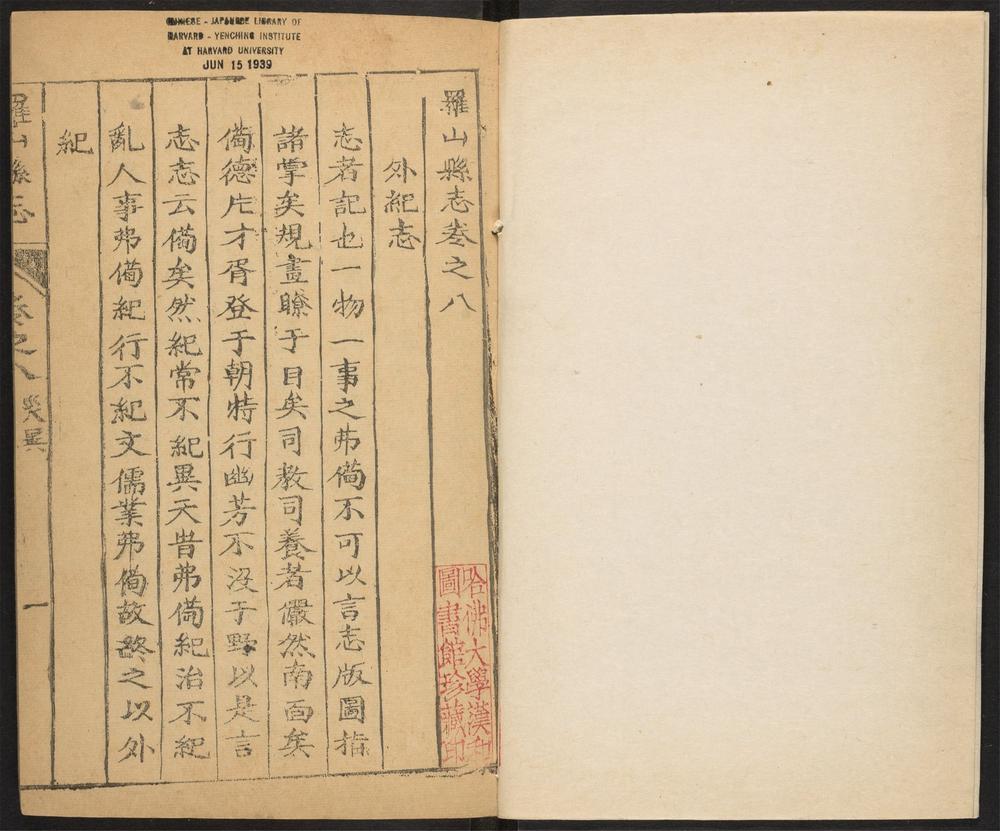 CHINESE - JAPANESE LIBRARY OF
HARVARD - YENCHING INSTITUTE
AT HARVARD UNIVERSITY
JUN 15 1939
羅山縣志卷之八
外紀志
志者記也一物一事之弗備不可以言志版圖指
諸掌矣規畫瞭于目矣司教司養者儼然南面矣
備德片才胥登于朝特行幽芳不没于野以是言
志志云備矣然紀常不紀異天眚弗備紀治不紀
亂人事弗備紀行不紀文儒業弗備故終之以外
紀
羅山縣志
卷之八 災異
一
哈佛大學漢和
圖書館珍藏印